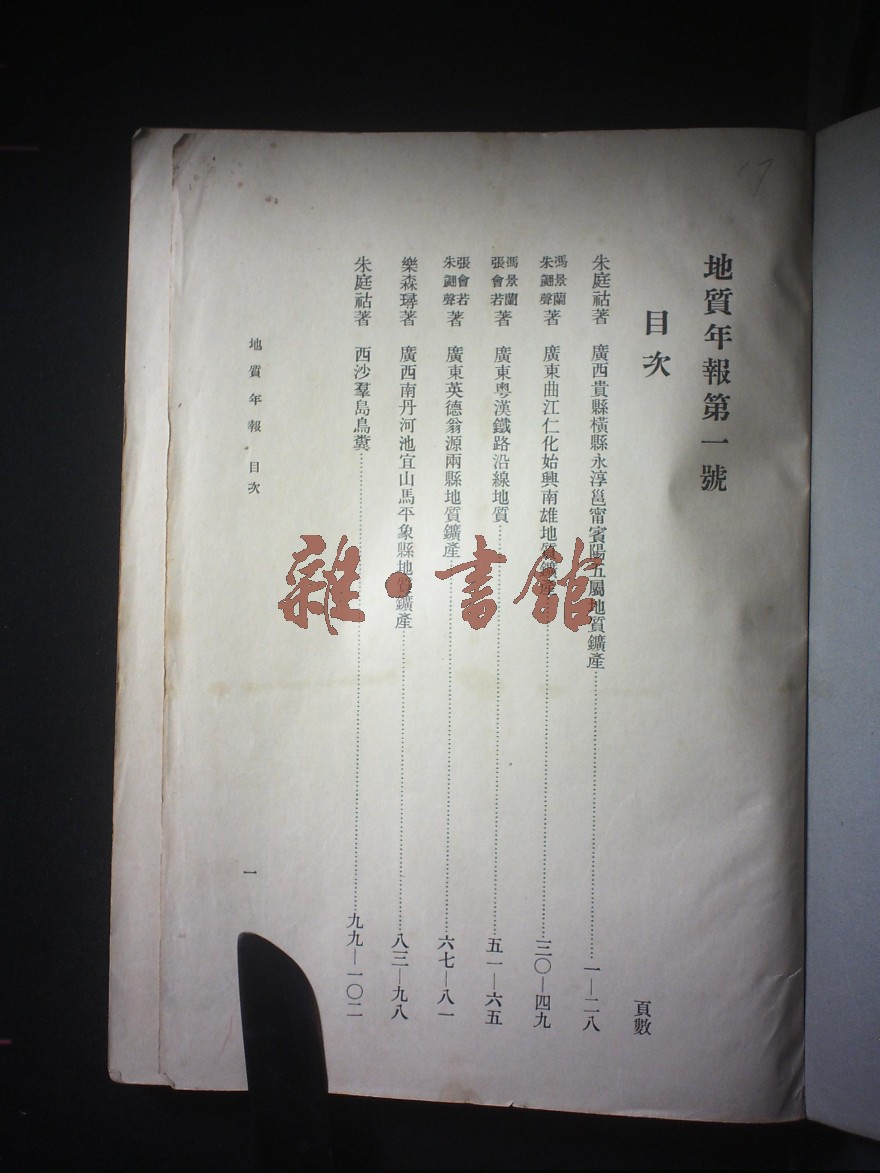 地質年報第一號
目次
頁數
朱庭祜著 廣西貴縣橫縣永淳邕甯賓陽五屬地質鑛產 一—二八
馮景蘭 朱翽聲 著 廣東曲江仁化始興南雄地質鑛產 三〇—四九
馮景蘭 張會若 著 廣東粵漢鐵路沿線地質 五一—六五
張會若 朱翽聲 著 廣東英德翁源兩縣地質鑛產 六七—八一
樂森璕著 廣西南丹河池宜山馬平象縣地質鑛產 八三—九八
朱庭祜著 西沙羣島鳥糞 九九—一〇二
地質年報 目次
一
雜·書館